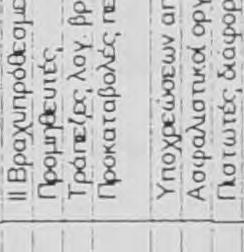 ΙΙ Βραχυπρόθεσμε
Προμηθευτές
Τράπεζες λογ. βρ
Προκαταβολές πε
Υποχρεώσεων απ
Ασφαλιστικοί οργ
Πιστωτές διάφορ